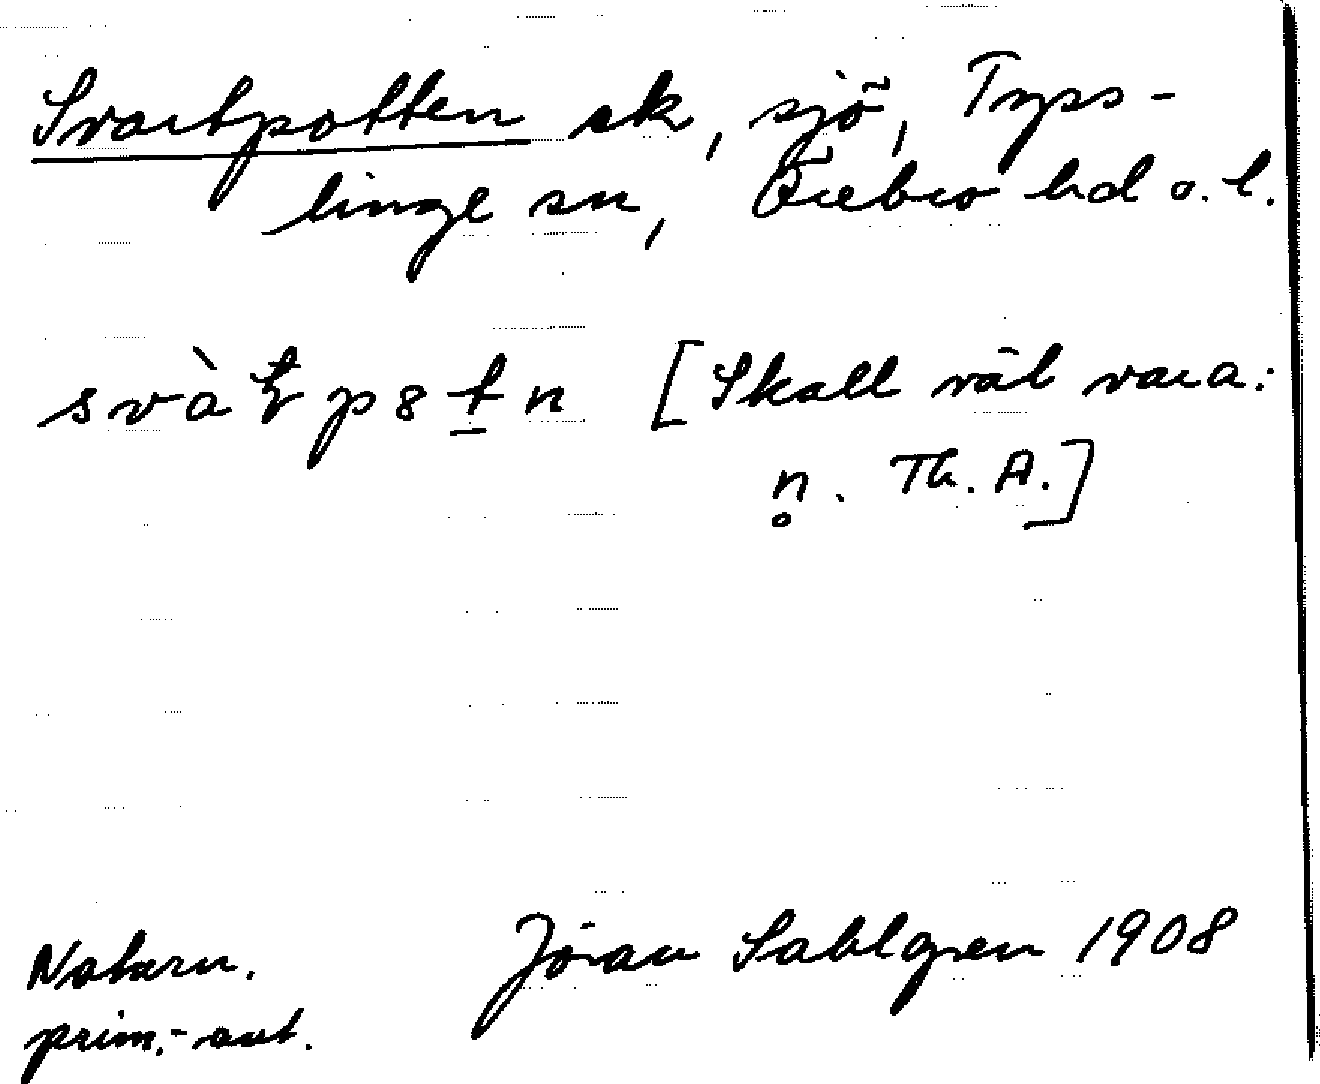 Svartpotten sk, sjö, Tyss-
linge sn, Örebro hd o. l.
[Skall väl vara:
n̥. Th. A.]
Naturn.
Jöran Sahlgren 1908
prim.-ant.